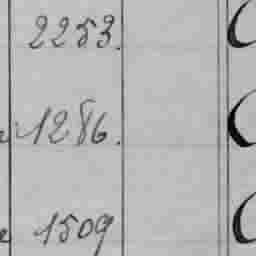 2253.
1286.
1509